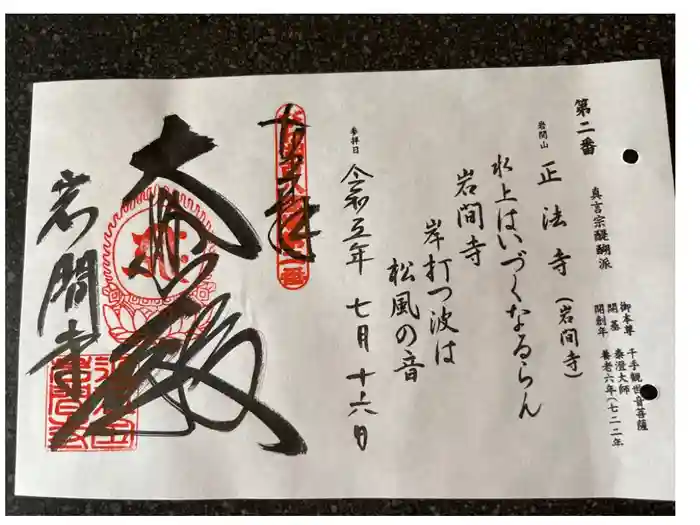 第二番
真言宗醍醐派
御本尊 千手観世音菩薩
開基 泰澄大師
開創年 養老六年(七二二年
岩間山 正法寺(岩間寺)
水上はいづくなるらん
岩間寺
岸打つ波は
松風の音
参拝日 令和五年 七月 十六日
大悲殿
岩間寺